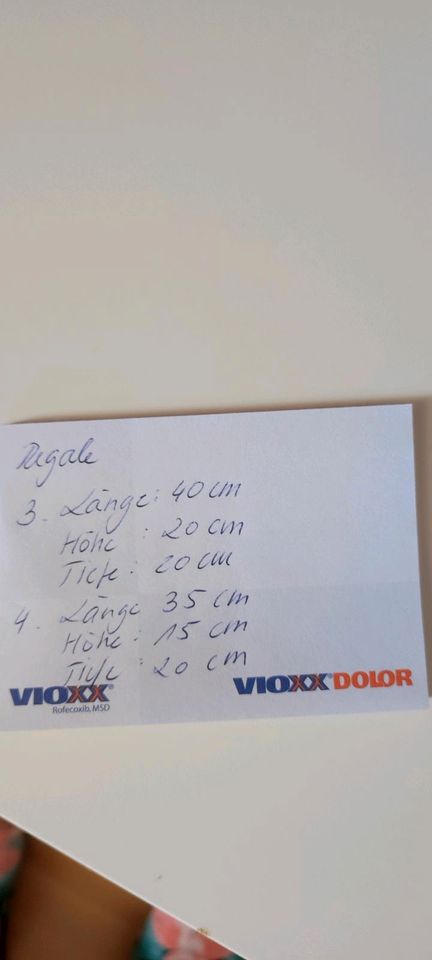 Regale
3. Länge: 40 cm
Höhe : 20 cm
Tiefe : 20 cm
4. Länge 35 cm
Höhe : 15 cm
Tiefe : 20 cm
VIOXX® VIOXX® DOLOR
Rofecoxib, MSD